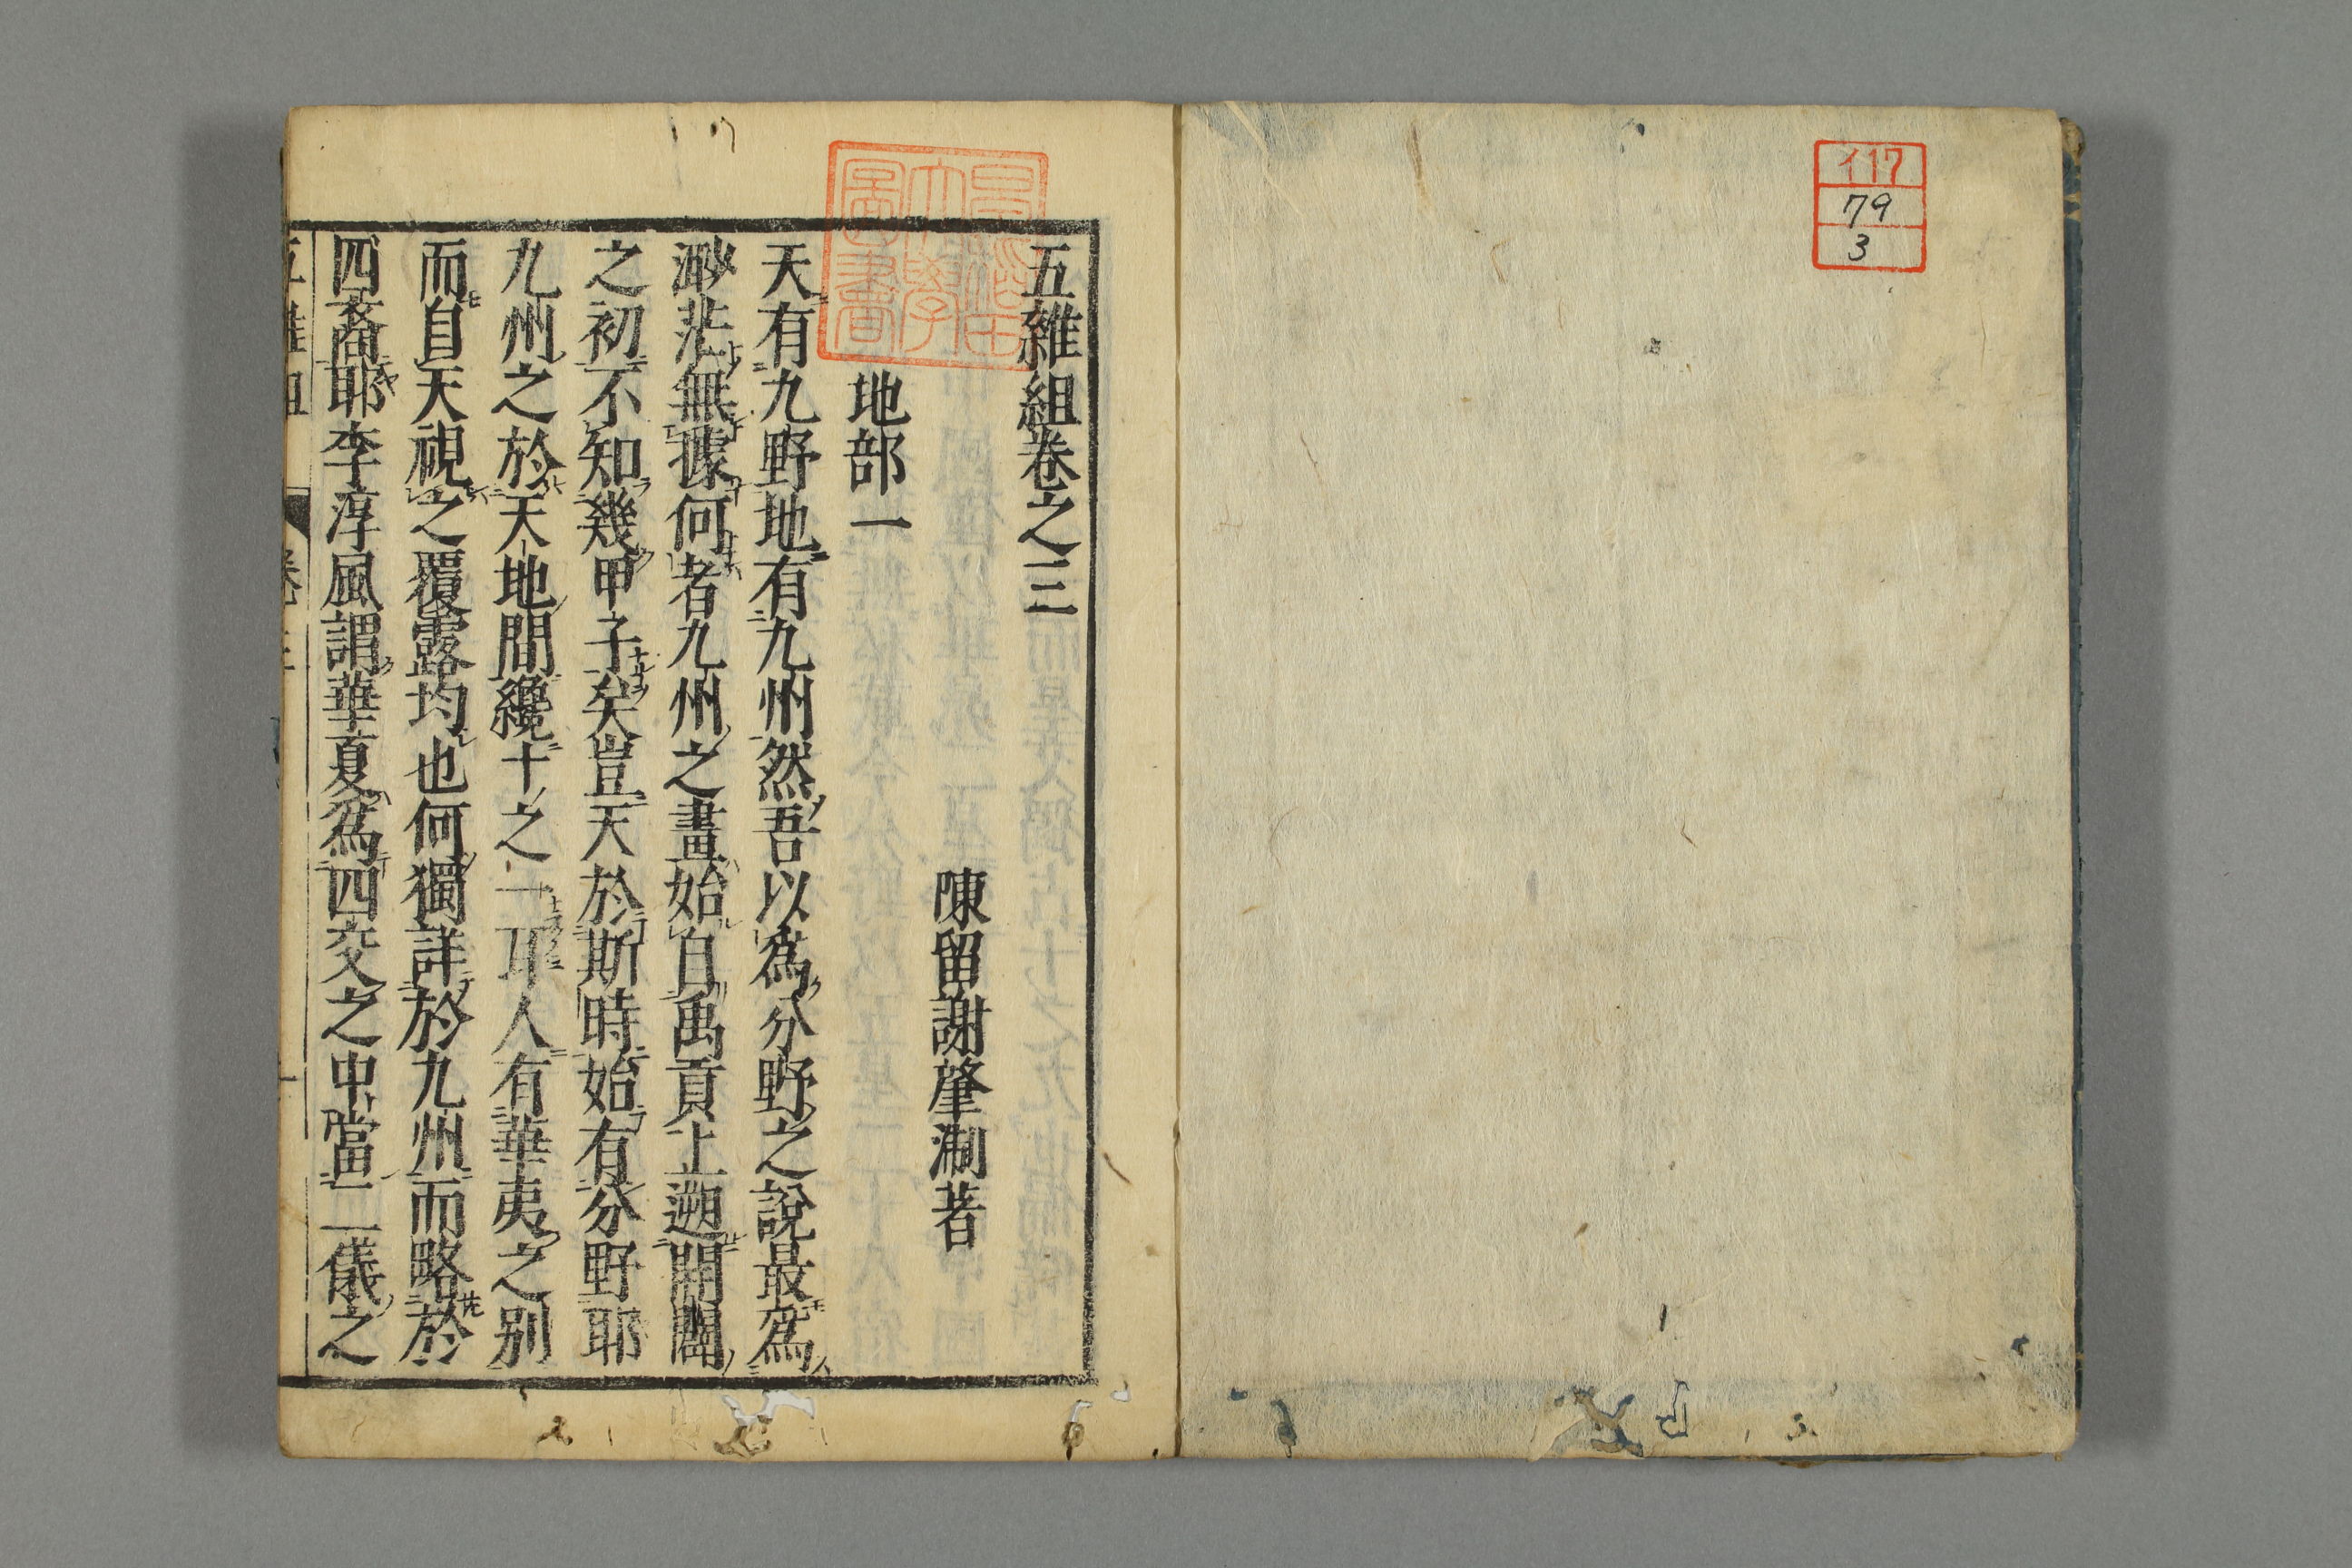 イ17
79
3
五雜組卷之三
陳留謝肇淛著
地部一
天有九野地有九州然吾以爲分野之說最爲
渺茫無據何者九州之畫始自禹貢上遡開闢
之初不知幾甲子矣豈天於斯時始有分野耶
九州之於天地間纔十之一耳人有華夷之別
而自天視之覆露均也何獨詳於九州而略於
四裔耶李淳風謂華夏爲四交之中當二儀之